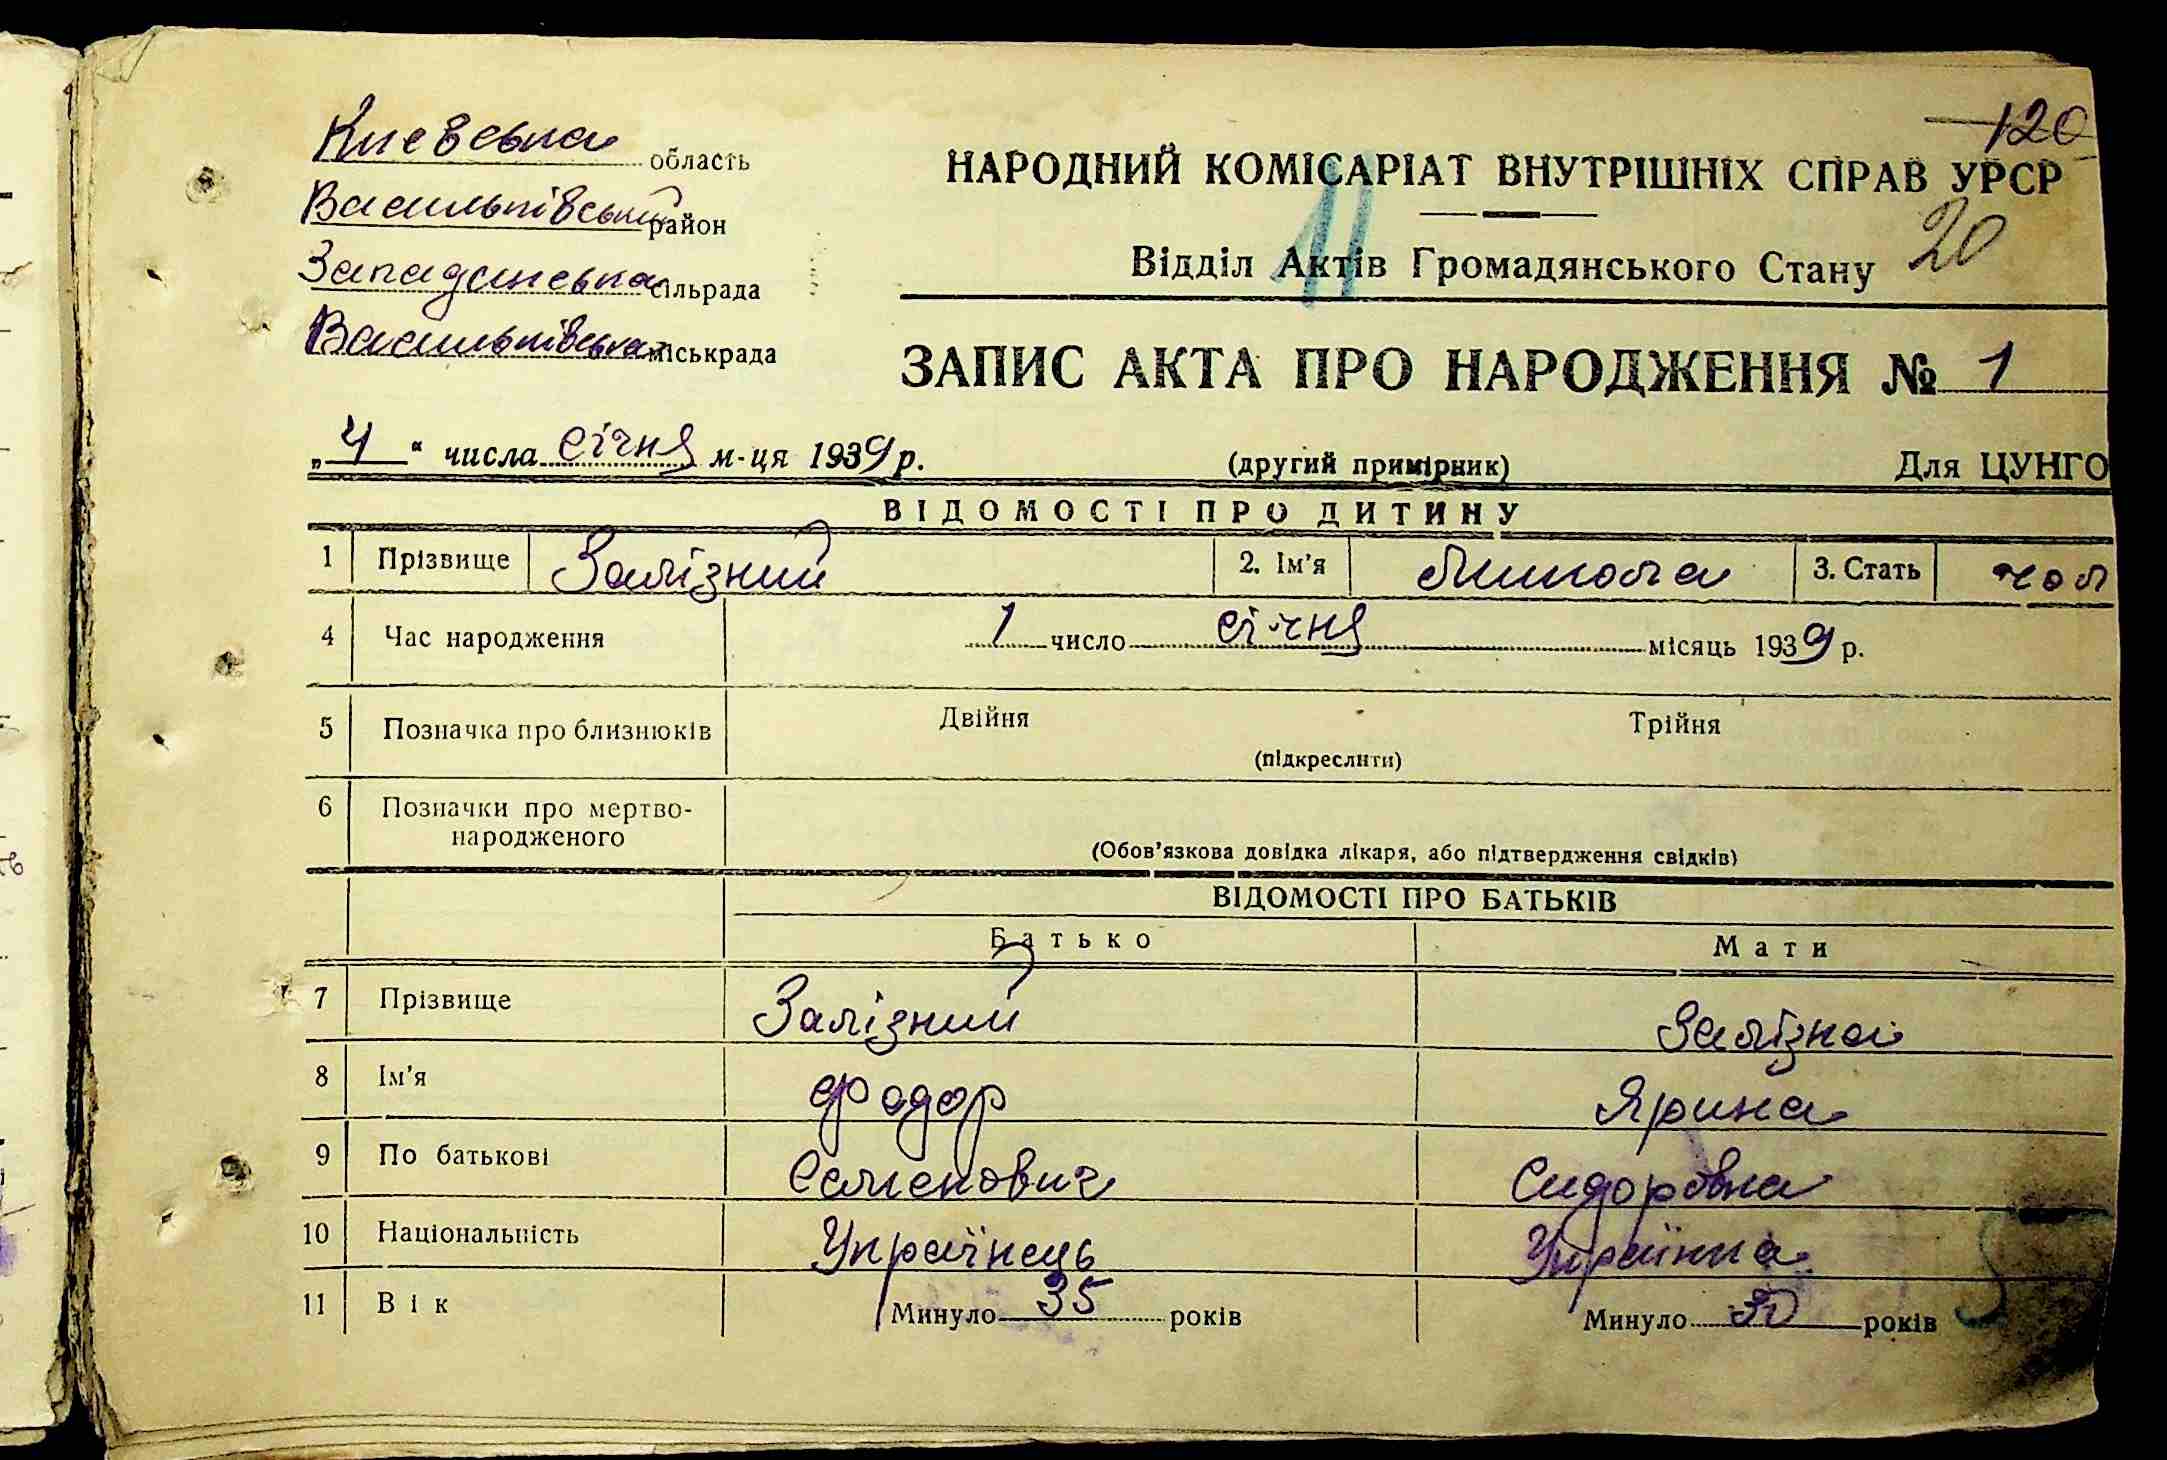 120
Києвська область
Васильківський район
Западинська сільрада
Васильківська міськрада
НАРОДНИЙ КОМІСАРІАТ ВНУТРІШНІХ СПРАВ УРСР
11
20
Відділ Актів Громадянського Стану
ЗАПИС АКТА ПРО НАРОДЖЕННЯ № 1
„4“ числа січня м-ця 1939 р.
(другий примірник)
Для ЦУНГО
ВІДОМОСТІ ПРО ДИТИНУ
1 Прізвище Залізний 2. Ім'я Микола 3. Стать чол
4 Час народження 1 число січня місяць 1939 р.
5 Позначка про близнюків Двійня Трійня
(підкреслити)
6 Позначки про мертво-
народженого
(Обов'язкова довідка лікаря, або підтвердження свідків)
ВІДОМОСТІ ПРО БАТЬКІВ
Батько Мати
7 Прізвище Залізний Залізна
8 Ім'я Фодор Ярина
9 По батькові Семенович Сидоровна
10 Національність Українець Українка
11 Вік Минуло 35 років Минуло 30 років